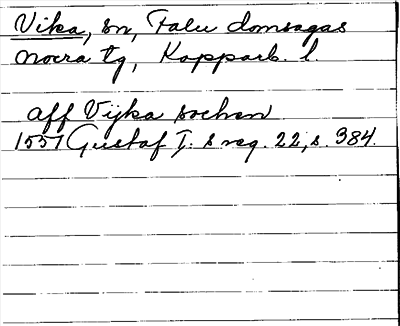 Vika, sn, Falu domsagas
norra tg, Kopparb. l.
aff Vijka sochen
1557 Gustaf I:s reg. 22, s. 384.